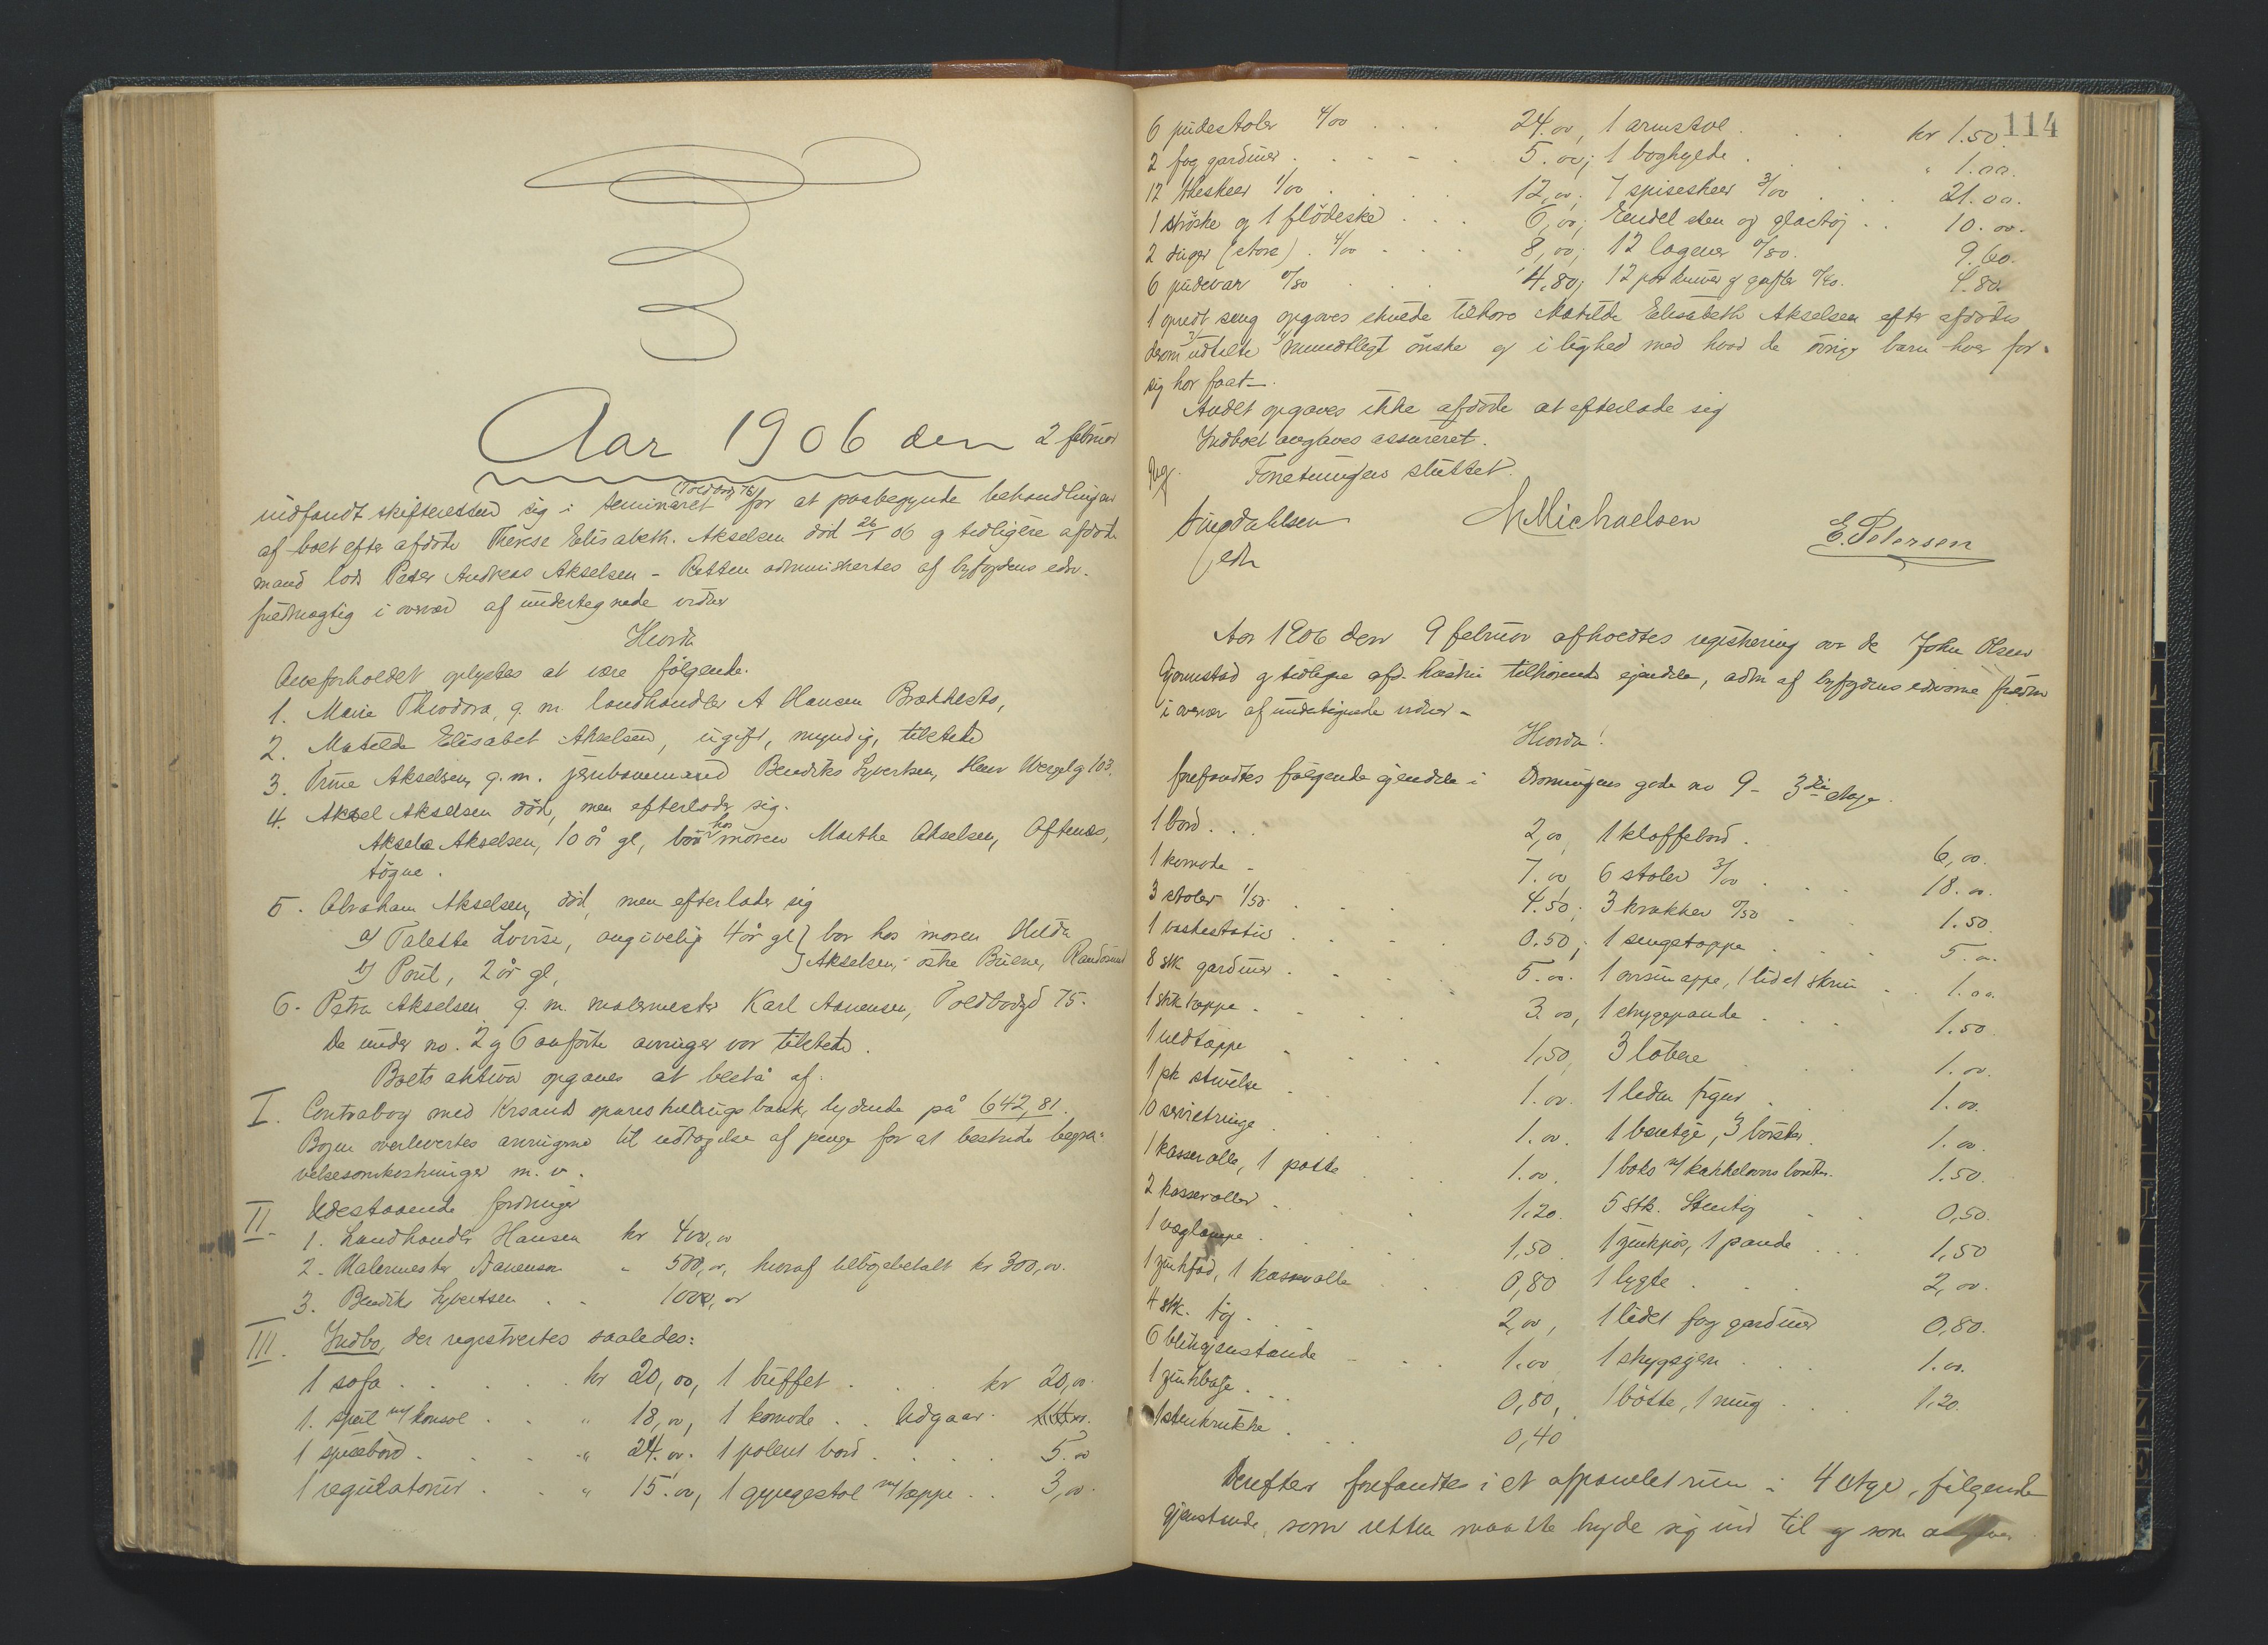 Aar 1906 den 2 februar
indfandt skifteretten sig i seminaret (Toldbodg 75) for at paabegynde behandlingen
af boet efter afdøde Therese Elisabeth Akselsen død 26/1 06 og tidligere afdøde
mand lods Peder Andreas Akselsen - Retten administrertes af byfogdens edsv.
fuldmægtig i overvær af undertegnede vidner
Hvorda
Arveforholdet oplystes at være følgende.
1. Marie Theodora, g. m. landhandler A Hansen Brækkestø,
2. Matilde Elisabet Akselsen, ugift, myndig, tilstede
3. Trine Akselsen, g. m. jernbanemand Bendiks Syvertsen, Henr Wergelg 103.
4. Aksel Akselsen død, men efterlader sig.
Aksele Akselsen, 10 år gl, bor hos moren Marthe Akselsen, Oftenes,
Søgne.
5. Abraham Akselsen, død, men efterlader sig
a) Talette Lovise, angivelig 4 år gl } bor hos moren Hilda
b) Poul, 2 år gl, } Akselsen, østre Randøsund
6. Petra Akselsen g. m. malermester Karl Aanensen, Toldbodgd 75.
De under no. 2 g 6 anførte arvinger var tilstede.
Boets aktiva opgaves at bestå af:
I. Contrabog med Krsands spareskillingsbank, lydende på 642,81.
Bogen overlevertes arvingerne til udtagelse af penge for at bestride begra-
velsesomkostninger m. v.
II. Udestaaende fordringer
1. Landhandler Hansen kr 400,00
2. Malermester Aanensen " 500,00, hvoraf tilbagebetalt kr 300,00.
3. Bendiks Syvertsen . . 1000,00
III. Indbo, der registrertes saaledes:
1 sofa . . . . . kr 20,00, 1 buffet . . . kr 20,00.
1. speil m/ konsol . . " 18,00, 1 komode . . Udgaar.
1 spisebord . . . . " 24.00. 1 poleret bord . . . . 5.00
1 regulatorur . . " 15.00, 1 gyngestol m/ tæppe . . 3,00.
114
6 pudestoler 4/00 . . . 24.00, 1 armstol . . . kr 1.50.
2 fag gardiner . . . . . 5.00; 1 boghylde . . . " 1.00.
12 theskeer 1/00 . . . 12,00; 7 spiseskeer 3/00 . . . 21.00.
1 strøske og 1 flødeske . . . 6,00; Endel sten og glastøj . . 10.00.
2 duger (store) . 4/00 . . . 8,00; 12 lagener 0/80. 9.60.
6 pudevar 0/80 . . . 4.80; 12 par kniver g gafler 0/40. 4.80.
1 opredt seng opgaves skulde tilhøre Matilde Elisabeth Akselsen efter afdødes
dersom udtalte mundtligt ønske og i lighed med hvad de øvrige barn hver for
sig har faat.
Andet opgaves ikke afdøde at efterlade sig
Indboet angaves assureret.
Forretningen sluttet.
Singdahlsen M Michaelsen E. Petersen
edsv
Aar 1906 den 9 februar afholdtes registrering over de John Olsen
Gjermestad g tidligere afd. hustru tilhørende ejendele, adm af byfogdens edsvorne fuldm
i overvær af undertegnede vidner -
Hvorda!
forefandtes følgende ejendele i Dronningens gade no 9 - 3die etage.
1 bord . . . 2,00 1 klaffebord . 6,00.
1 komode - 7.00 6 stoler 3/00 . . . 18.00.
3 stoler 1/50 . . . 4.50; 3 krakker 0/50 . 1.50.
1 vaskestativ . . . . 0.50; 1 sengetæppe . . . 5.00.
8 stk gardiner . . . . 5.00. 1 , 1 lidet skrin . . 1.00.
1 stk tæppe . . . . 3.00, 1 . . . 1.50.
1 uldtæppe . . . . 1,50, 3 løbere . . . 1.00.
1 pk stivelse . 1.00. 1 figur . . . 1.00.
10 servietringe . . . 1.00. 1 , 3 børster. 1.00.
1 kasserolle, 1 potte . . . 1.00. 1 boks m/ kakkelovns . 1.50.
2 kasseroller . . . 1.20. 5 stk. Stentøj . . 0,50.
1 væglampe . . . . 1,50 1 , 1 pande . . . 1,50
1 zinkfad, 1 kasserolle . . 0,80 1 lygte . . . 2,00.
4 stk. tøj . . . 2,00, 1 lidet fag gardiner 0,80.
6 blikgjenstande . . . 1.00 1 strygejern . . . 1.00.
1 zinkbalje . . . 0,80, 1 bøtte, 1 . . 1,20.
1 stenkrukke . . . 0,40
Derefter forefandtes i et afpanelet rum i 4 etge, følgende
gjenstande, som retten maatte bryde sig ind til og som